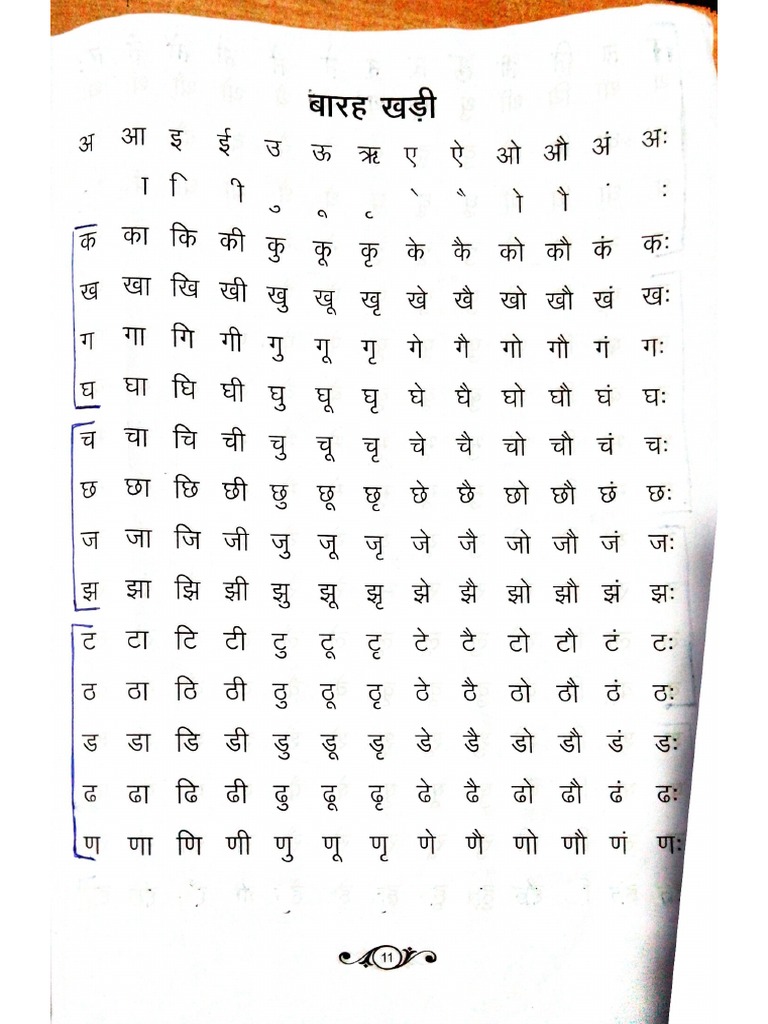 बारह खड़ी
अ आ इ ई उ ऊ ऋ ए ऐ ओ औ अं अः
ा ि ी ु ू ृ े ै ो ौ ं ः
क का कि की कु कू कृ के कै को कौ कं कः
ख खा खि खी खु खू खृ खे खै खो खौ खं खः
ग गा गि गी गु गू गृ गे गै गो गौ गं गः
घ घा घि घी घु घू घृ घे घै घो घौ घं घः
च चा चि ची चु चू चृ चे चै चो चौ चं चः
छ छा छि छी छु छू छृ छे छै छो छौ छं छः
ज जा जि जी जु जू जृ जे जै जो जौ जं जः
झ झा झि झी झु झू झृ झे झै झो झौ झं झः
ट टा टि टी टु टू टृ टे टै टो टौ टं टः
ठ ठा ठि ठी ठु ठू ठृ ठे ठै ठो ठौ ठं ठः
ड डा डि डी डु डू डृ डे डै डो डौ डं डः
ढ ढा ढि ढी ढु ढू ढृ ढे ढै ढो ढौ ढं ढः
ण णा णि णी णु णू णृ णे णै णो णौ णं णः
11